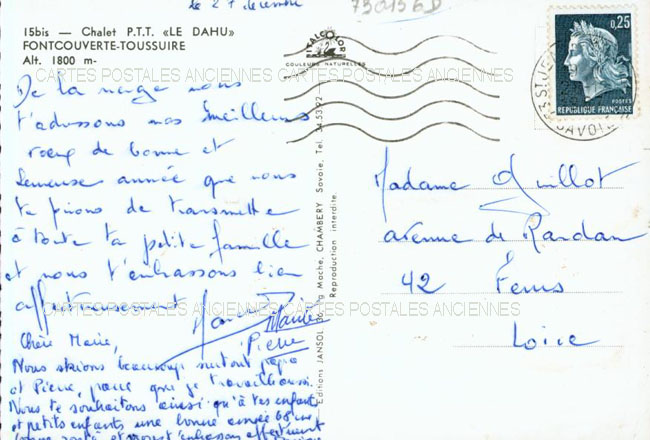 le 27 decembre
15bis — Chalet P.T.T. «LE DAHU»
FONTCOUVERTE-TOUSSUIRE
Alt. 1800 m-
ITALCOLOR
COULEURS NATURELLES
0,25
POSTES
REPUBLIQUE FRANÇAISE
SAVOIE
CARTES POSTALES ANCIENNES CARTES POSTALES ANCIENNES
De la neige nous
t'adressons nos meilleurs
voeux de bonne et
heureuse année que nous
te prions de transmettre
à toute ta petite famille
et nous t'embrassons bien
affectueusement
Marie
Pierre
CARTES POSTALES ANCIENNES CARTES POSTALES ANCIENNES
Chère Marie,
Nous skions beaucoup surtout papa
et Pierre, parce que je travaille aussi.
Nous te souhaitons ainsi qu'à tes enfants
et petits enfants une bonne année
bonne santé et nous t'embrassons affectueusement
Editions JANSOL, CHAMBERY Savoie, Tel. 34.53.92
Reproduction interdite.
Madame Guillot
avenue de Randan
42 Feurs
Loire